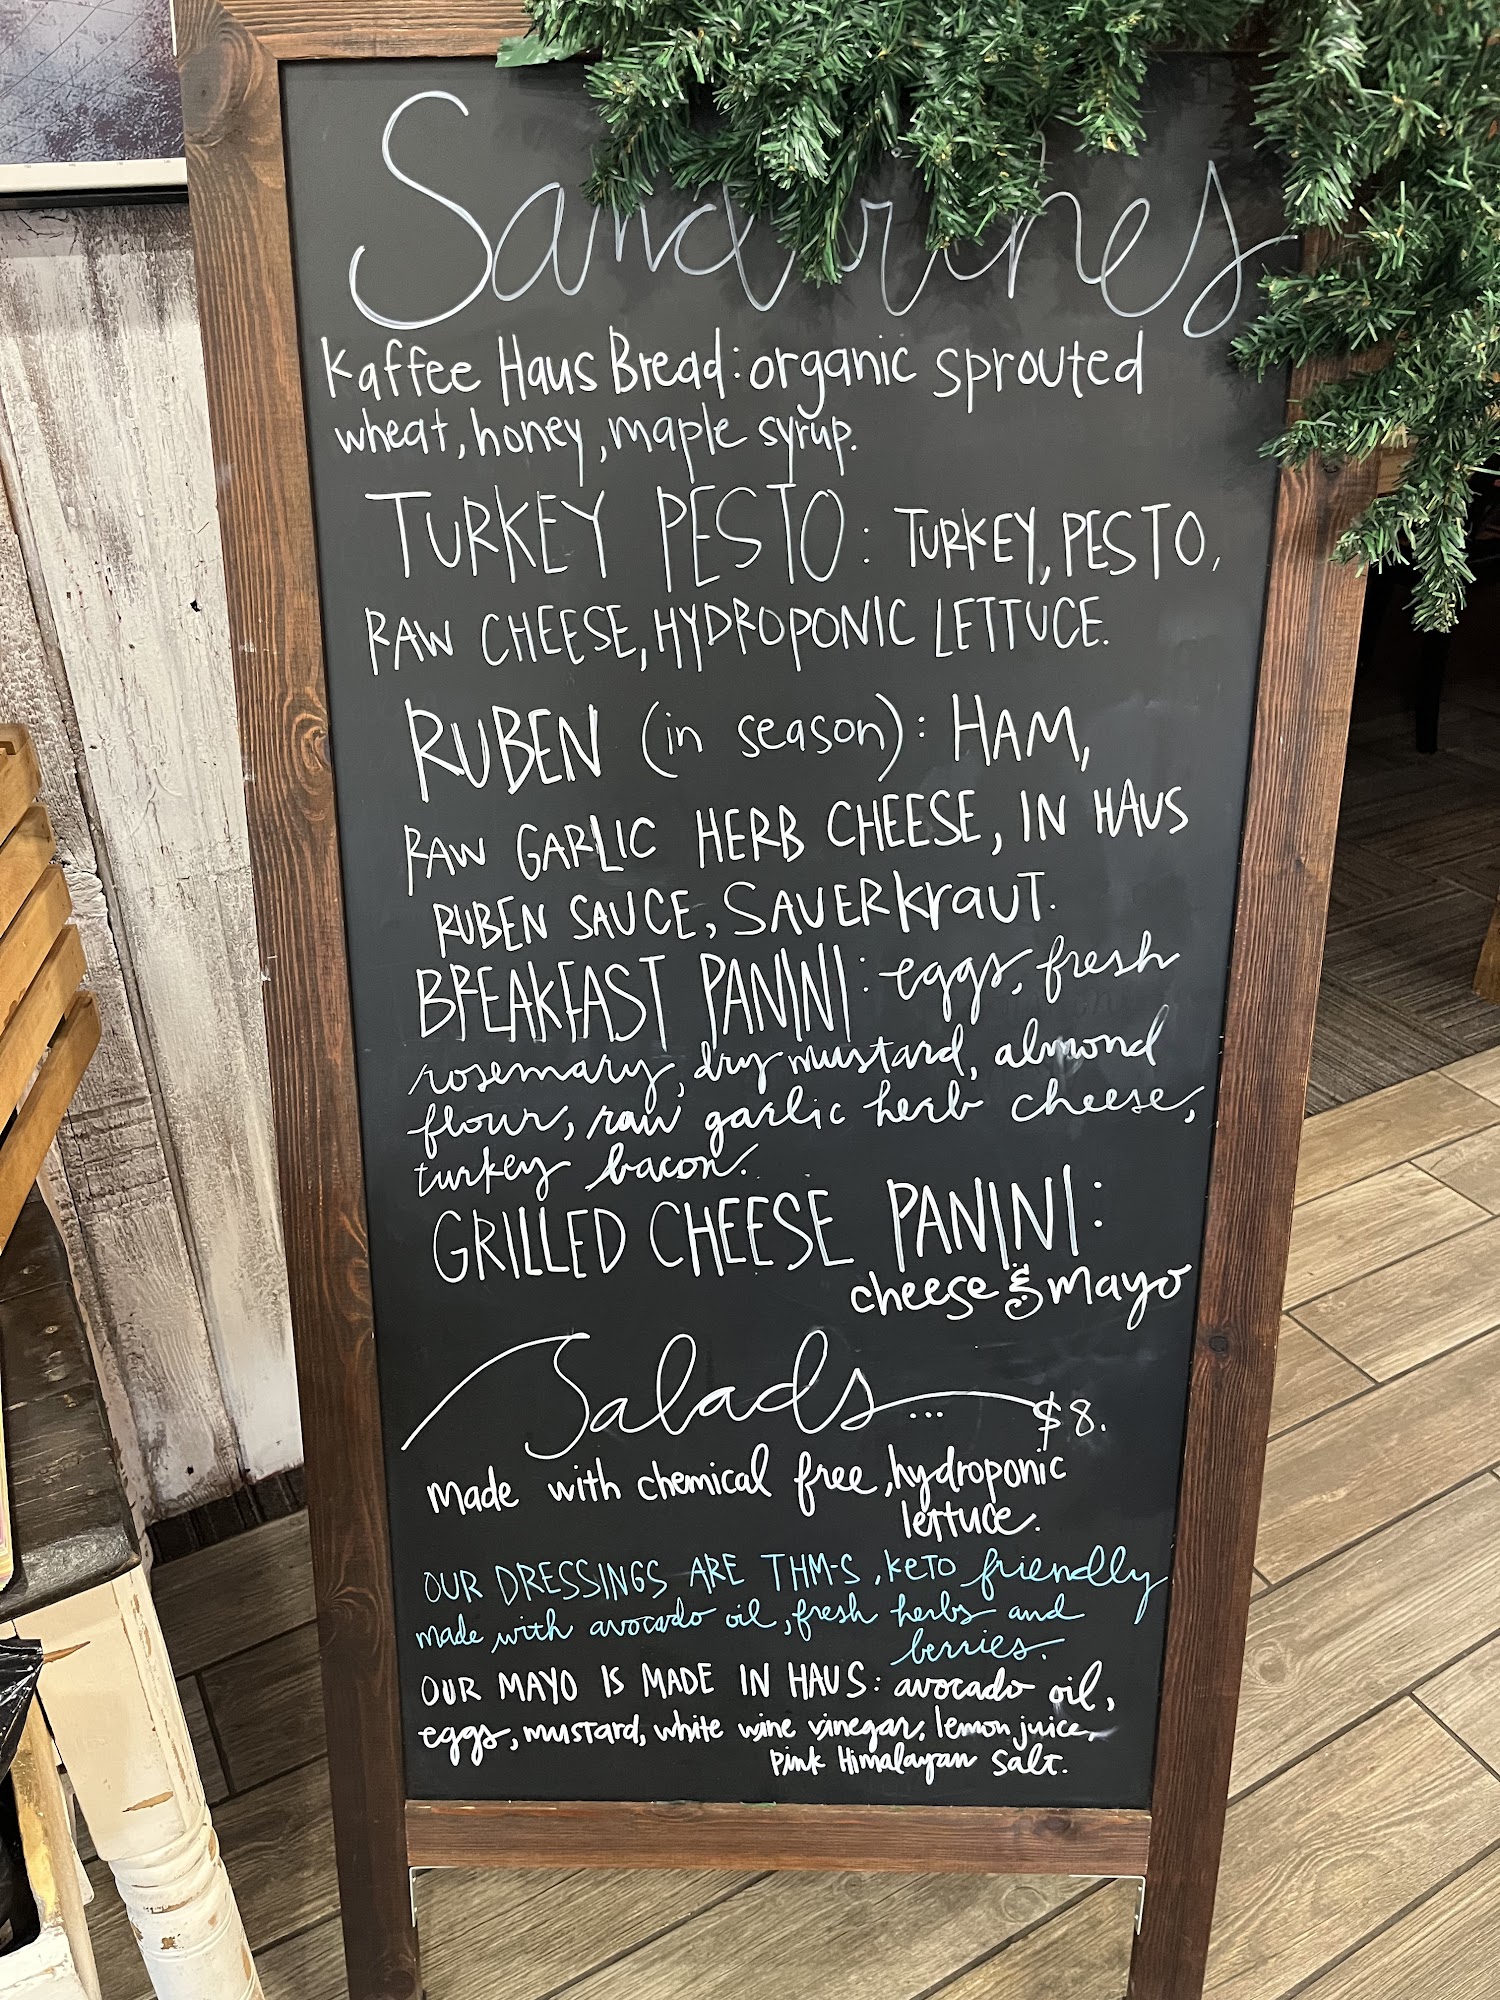 Sandwiches
Kaffee Haus Bread: organic sprouted
wheat, honey, maple syrup.
TURKEY PESTO: TURKEY, PESTO,
RAW CHEESE, HYDROPONIC LETTUCE.
RUBEN (in season): HAM,
RAW GARLIC HERB CHEESE, IN HAUS
RUBEN SAUCE, SAUERKRAUT.
BREAKFAST PANINI: eggs, fresh
rosemary, dry mustard, almond
flour, raw garlic herb cheese,
turkey bacon.
GRILLED CHEESE PANINI:
cheese & mayo
Salads... $8.
Made with chemical free, hydroponic
lettuce.
OUR DRESSINGS ARE THM-S, KETO friendly
made with avocado oil, fresh herbs and
berries.
OUR MAYO IS MADE IN HAUS: avocado oil,
eggs, mustard, white wine vinegar, lemon juice,
Pink Himalayan Salt.